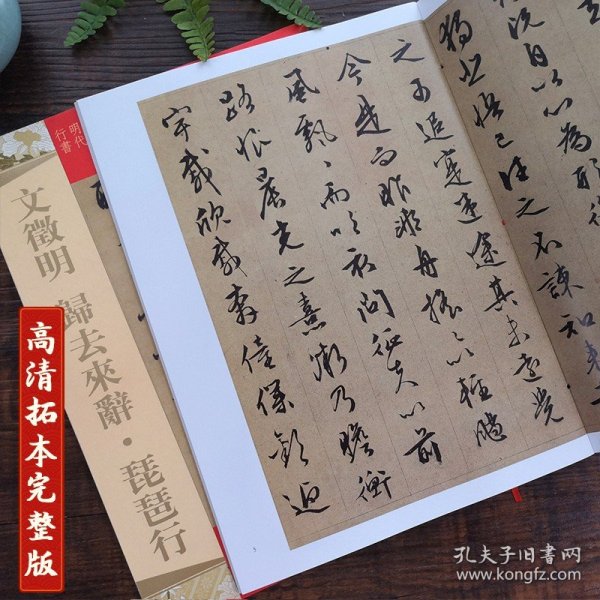 既自以心為形
獨悲悟已往之不諫知來
之可追寔迷途其未遠覺
今是而昨非舟搖〻以輕颺
風飄〻而吹衣問征夫以前
路恨晨光之熹微乃瞻衡
宇載欣載奔僮僕歡迎
5
明代
行書
文徵明 歸去來辭·琵琶行
高清拓本完整版
孔夫子旧書网
www.kongfz.com